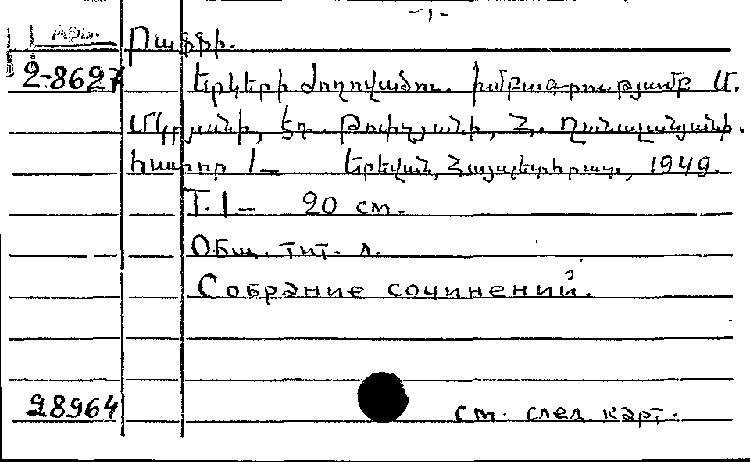 -1-
Арм.
Րաֆֆի.
2-8627 Երկերի ժողովածու. Խմբագրությամբ Մ.
Մկրյանի, Էդ. Թոփչյանի, Հ. Ղանալանյանի.
Հատոր 1- Երևան, Հայպետհրատ, 1949.
Т. 1- 20 см.
Общ. тит. л.
Собрание сочинений.
28964 см. след карт.